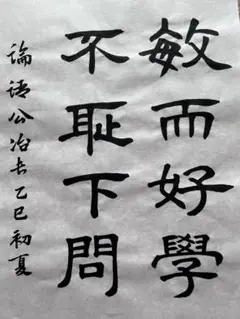 敏而好學
不恥下問
論語公冶长乙巳初夏